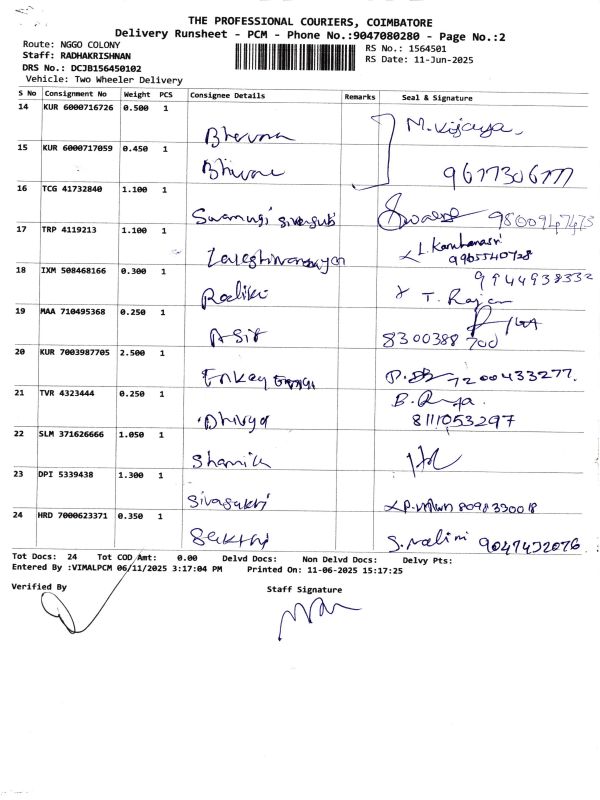 THE PROFESSIONAL COURIERS, COIMBATORE
Delivery Runsheet - PCM - Phone No.:9047080280 - Page No.:2
Route: NGGO COLONY
RS No.: 1564501
Staff: RADHAKRISHNAN
RS Date: 11-Jun-2025
DRS No.: DCJB156450102
Vehicle: Two Wheeler Delivery
S No Consignment No Weight PCS Consignee Details Remarks Seal & Signature
14 KUR 6000716726 0.500 1
M. Vijaya
15 KUR 6000717059 0.450 1
9677306777
16 TCG 41732840 1.100 1
9800947473
17 TRP 4119213 1.100 1
9965540728
18 IXM 508468166 0.300 1
9944938332
T. Rajan
19 MAA 710495368 0.250 1
Asir
8300388700
20 KUR 7003987705 2.500 1
Enkay
7200433277.
21 TVR 4323444 0.250 1
Dhivya
8111053297
22 SLM 371626666 1.050 1
23 DPI 5339438 1.300 1
Sivasakti
8098330018
24 HRD 7000623371 0.350 1
Sakthi
S. Malini 9047452076
Tot Docs: 24 Tot COD Amt: 0.00 Delvd Docs: Non Delvd Docs: Delvy Pts:
Entered By :VIMALPCM 06/11/2025 3:17:04 PM Printed On: 11-06-2025 15:17:25
Verified By
Staff Signature